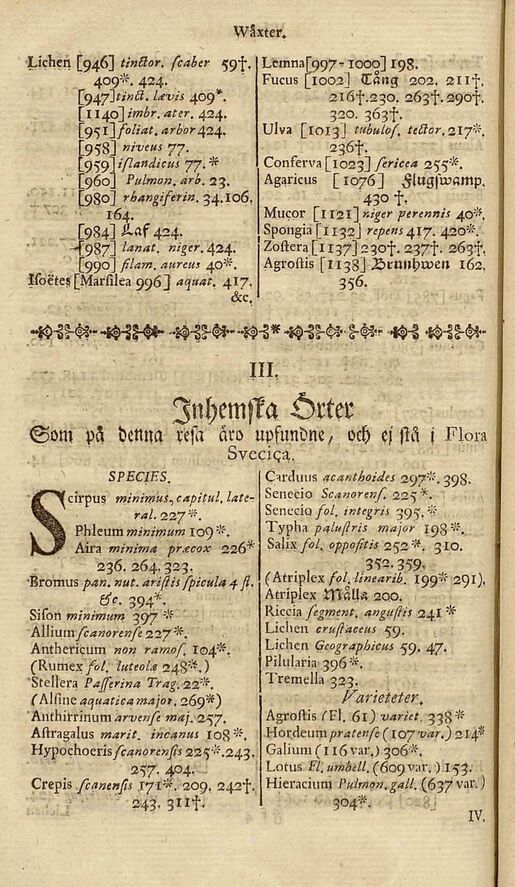 Wåxter.
Lichen [946] tinctor. scaber 59†.
409*. 424.
[947] tinct. lævis 409*.
[1140] imbr. ater. 424.
[951] foliat. arbor 424.
[958] niveus 77.
[959] islandicus 77.*
[960] Pulmon. arb. 23.
[980] rhangiferin. 34. 106.
164.
[984] Laf 424.
[987] lanat. niger. 424.
[990] filam. aureus 40*.
Isoëtes [Marsilea 996] aquat. 417.
&c.
Lemna [997-1000] 198.
Fucus [1002] Tång 202. 211†.
216†. 230. 263†. 290†.
320. 363†.
Ulva [1013] tubulos. tector. 217*.
236†.
Conferva [1023] sericea 255*.
Agaricus [1076] Flugswamp.
430 †.
Mucor [1121] niger perennis 40*.
Spongia [1132] repens 417. 420*.
Zostera [1137] 230†. 237†. 263†.
Agrostis [1138] Brunhwen 162.
356.
III.
Inhemska Örter
Som på denna resa äro upfundne, och ej stå i Flora
Sveciça.
SPECIES.
Scirpus minimus. capitul. late-
ral. 227*.
Phleum minimum 109*.
Aira minima præcox 226*
236. 264. 323.
Bromus pan. nut. aristis spicula 4 fl.
&c. 394*.
Sison minimum 397 *
Allium scanorense 227*.
Anthericum non ramos. 104*.
(Rumex fol. luteolæ 248*.)
Stellera Passerina Trag. 22*.
(Alsine aquatica major. 269*)
Anthirrinum arvense maj. 257.
Astragalus marit. incanus 108*.
Hypochoeris scanorensis 225*. 243.
257. 404.
Crepis scanensis 171*. 209. 242†.
243. 311†.
Carduus acanthoides 297*. 398.
Senecio Scanorens. 225*.
Senecio fol. integris 395.*
Typha palustris major 198*.
Salix fol. oppositis 252*. 310.
352. 359.
(Atriplex fol. linearib. 199* 291).
Atriplex Målla 200.
Riccia segment. angustis 241 *
Lichen crustaceus 59.
Lichen Geographicus 59. 47.
Pilularia 396*.
Tremella 323.
Varieteter.
Agrostis (Fl. 61) variet. 338*
Hordeum pratense (107 var.) 214*
Galium (116 var.) 306*.
Lotus Fl. umbell. (609 var.) 153.
Hieracium Pulmon. gall. (637 var.)
304*.
IV.